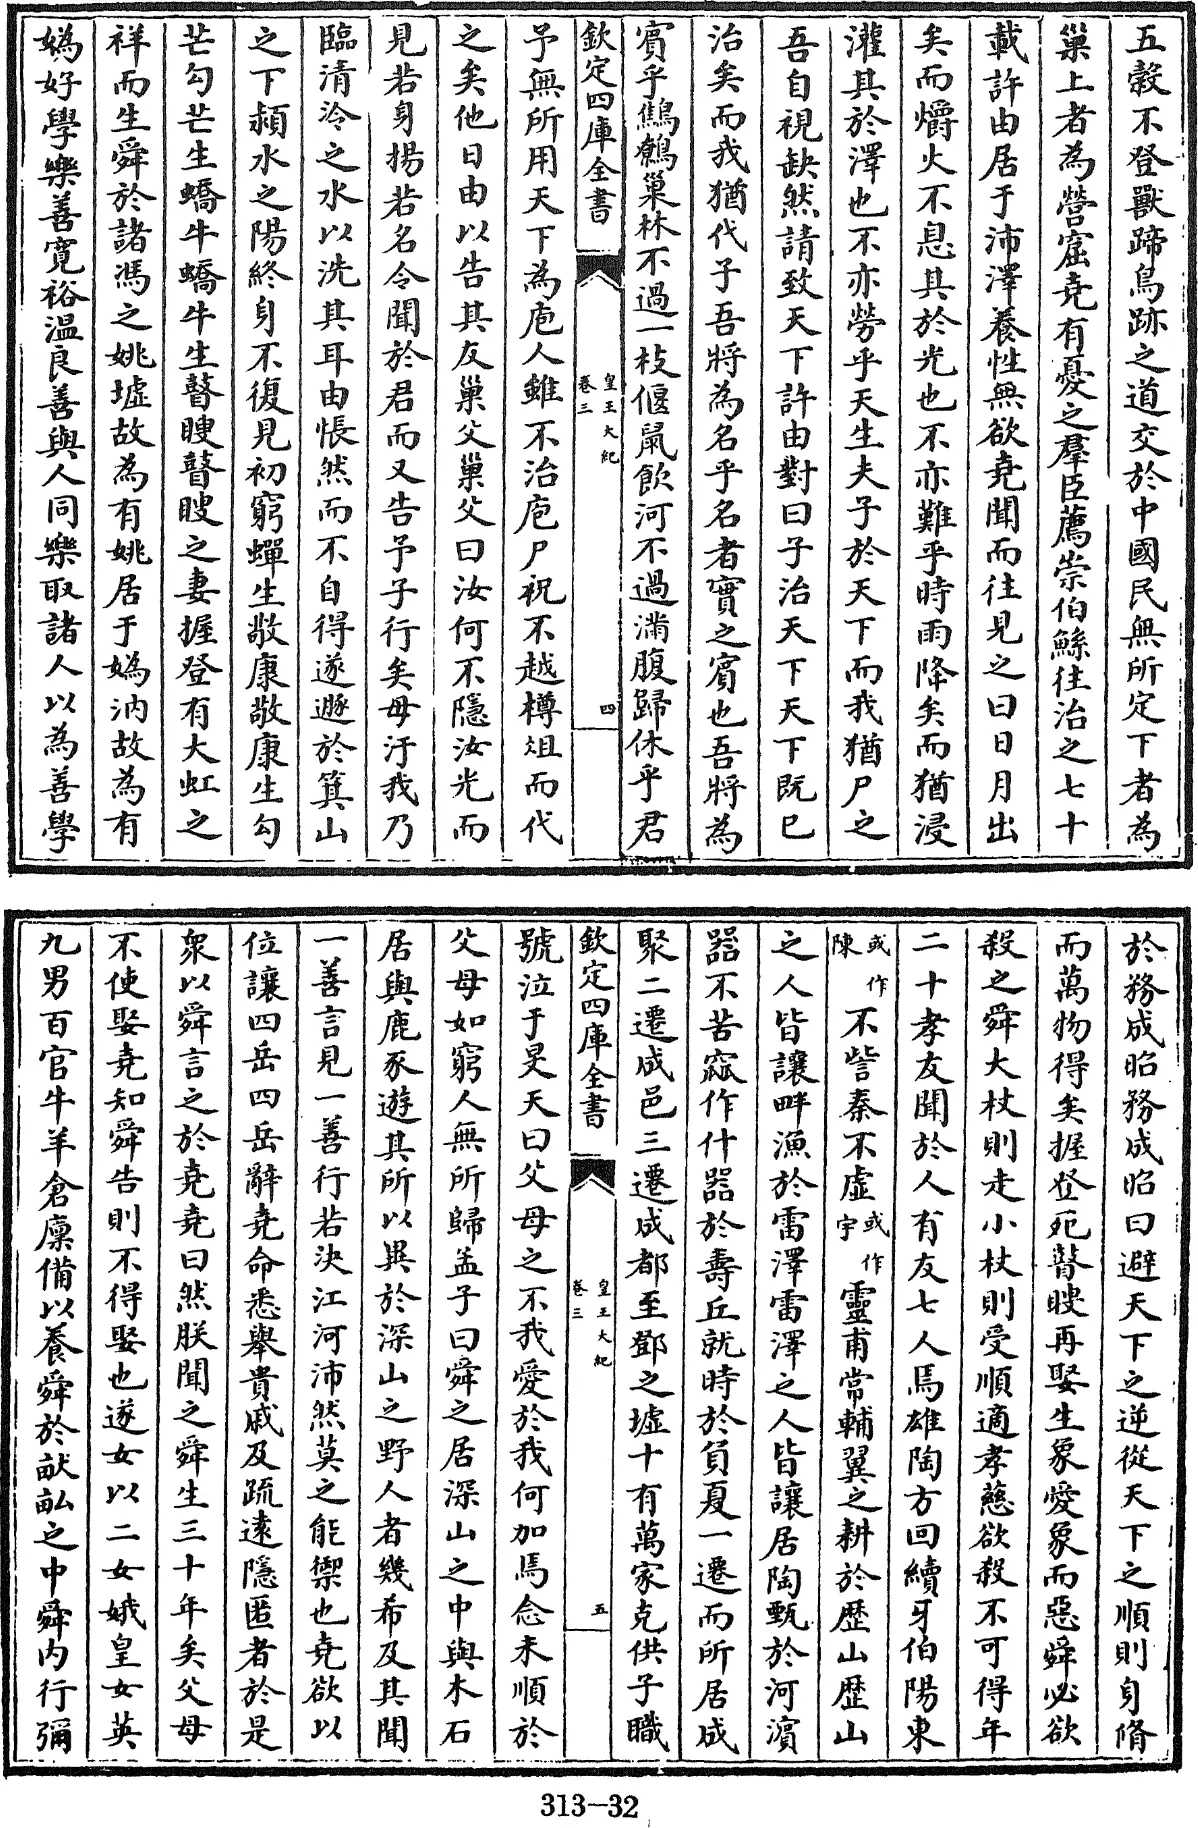 五穀不登獸蹄鳥跡之道交於中國民無所定下者為
巢上者為營窟堯有憂之羣臣薦崇伯鯀往治之七十
載許由居于沛澤養性無欲堯聞而往見之曰日月出
矣而爝火不息其於光也不亦難乎時雨降矣而猶浸
灌其於澤也不亦勞乎天生夫子於天下而我猶尸之
吾自視缺然請致天下許由對曰子治天下天下既已
治矣而我猶代子吾將為名乎名者實之賓也吾將為
賓乎鷦鷯巢林不過一枝偃鼠飲河不過滿腹歸休乎君
欽定四庫全書
皇王大紀
卷三
四
予無所用天下為庖人雖不治庖尸祝不越樽俎而代
之矣他日由以告其友巢父巢父曰汝何不隱汝光而
見若身揚若名令聞於君而又告予子行矣毋汙我乃
臨清泠之水以洗其耳由悵然而不自得遂遯於箕山
之下潁水之陽終身不復見初窮蟬生敬康敬康生勾
芒勾芒生蟜牛蟜牛生瞽瞍瞽瞍之妻握登有大虹之
祥而生舜於諸馮之姚墟故為有姚居于媯汭故為有
媯好學樂善寬裕温良善與人同樂取諸人以為善學
於務成昭務成昭曰避天下之逆從天下之順則身脩
而萬物得矣握登死瞽瞍再娶生象愛象而惡舜必欲
殺之舜大杖則走小杖則受順適孝慈欲殺不可得年
二十孝友聞於人有友七人馬雄陶方回續牙伯陽東
或作陳不訾秦不虚或作宇靈甫常輔翼之耕於歴山歴山
之人皆讓畔漁於雷澤雷澤之人皆讓居陶甄於河濱
器不苦窳作什器於壽丘就時於負夏一遷而所居成
聚二遷成邑三遷成都至鄧之墟十有萬家克供子職
欽定四庫全書
皇王大紀
卷三
五
號泣于旻天曰父母之不我愛於我何加馬念未順於
父母如窮人無所歸孟子曰舜之居深山之中與木石
居與鹿豕遊其所以異於深山之野人者幾希及其聞
一善言見一善行若決江河沛然莫之能禦也堯欲以
位讓四岳四岳辭堯命悉舉貴戚及疏遠隱匿者於是
衆以舜言之於堯堯曰然朕聞之舜生三十年矣父母
不使娶堯知舜告則不得娶也遂女以二女娥皇女英
九男百官牛羊倉廩備以養舜於畎畝之中舜内行彌
313-32